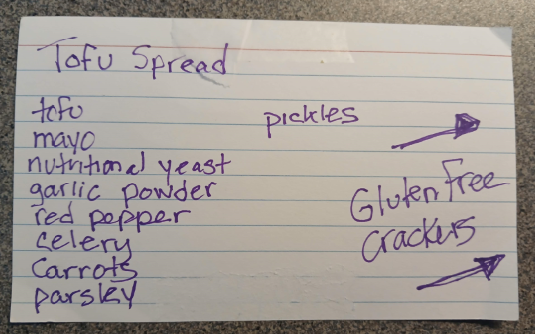 Tofu Spread
tofu
mayo
nutritional yeast
garlic powder
red pepper
celery
carrots
parsley
pickles
Gluten Free
Crackers